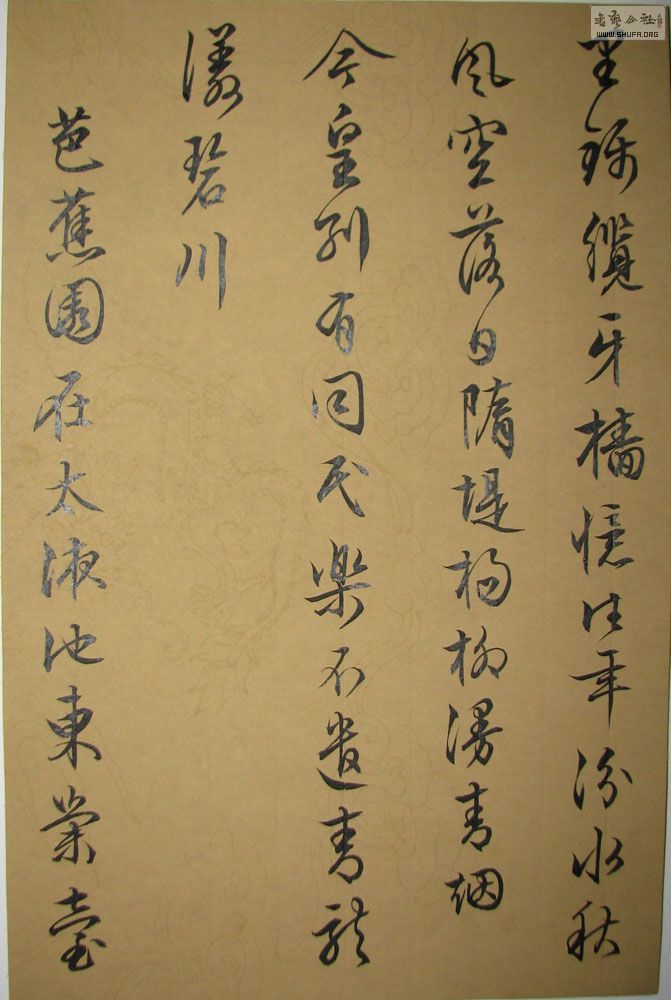 里 锦缆牙樯憶往年汾水秋
風空落日隋堤楊柳漫青烟
今皇别有同民樂不遣青龍
漾碧川
芭蕉園在太液池東崇臺
書藝公社
WWW.SHUFA.ORG